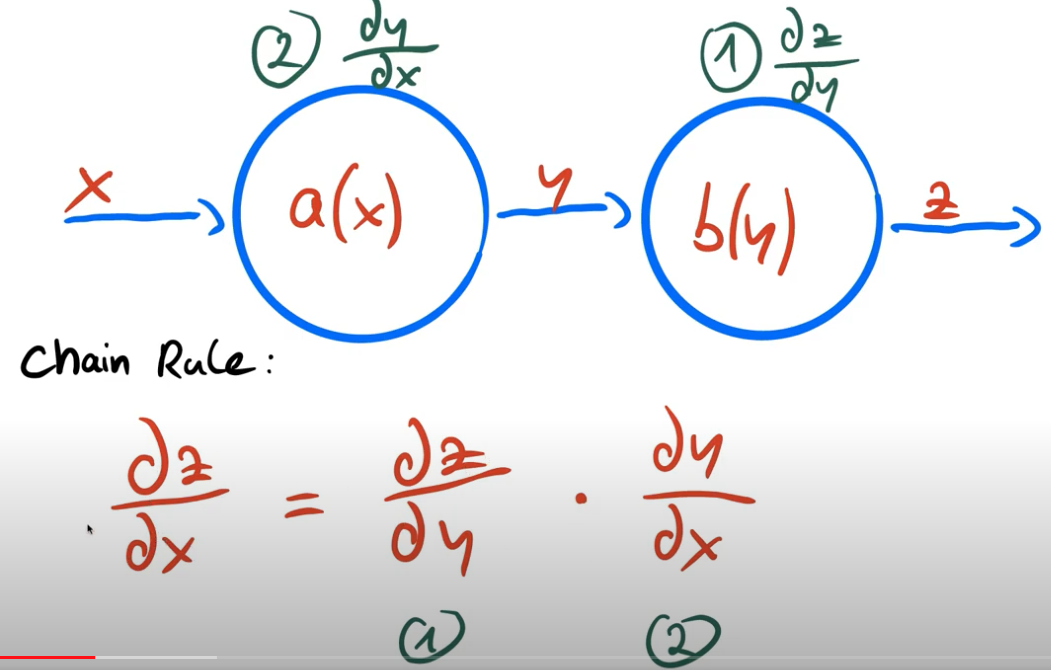 ② ∂y/∂x ① ∂z/∂y
x a(x) y b(y) z
Chain Rule:
∂z/∂x = ∂z/∂y · ∂y/∂x
① ②